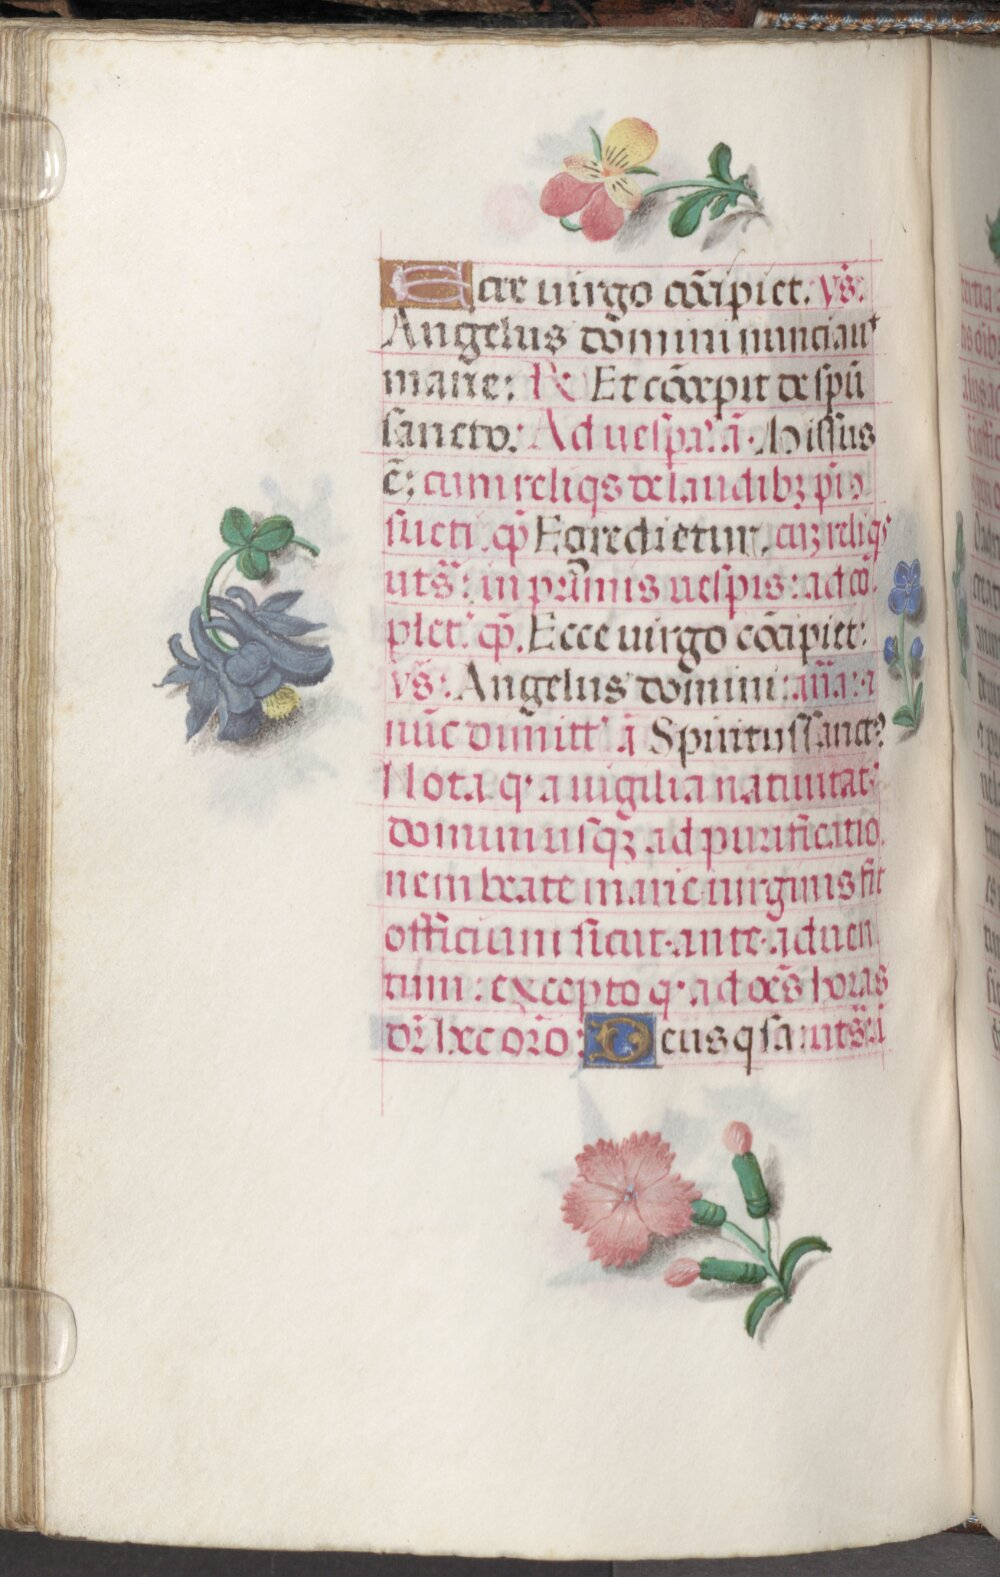 Ecce uirgo cõcipiet. v̾s:
Angelus dõmini nunciauͭ
marie: ℟ Et cõcepit de spũ
sancto: Ad uesperã. ã. Missus
ẽ: cum reliqs de laudibꝫ
sueti. cp̄ Egredietur, cuꝫ reliqs
ut sͣ: in primis uespis: ad cõ
plet. cp̄. Ecce uirgo cõcipiet:
v̾s: Angelus domini: añã: a
nũc dimitt' ã Spiritussanct9
Nota q' a uigilia natiuitat
domini usqꝫ ad purificatio
nem beate marie uirginis fit
officium sicut ante aduen
tum: excepto q' ad oẽs horas
dr̃ hec orõ: Deus q sa: ut sͣ: i